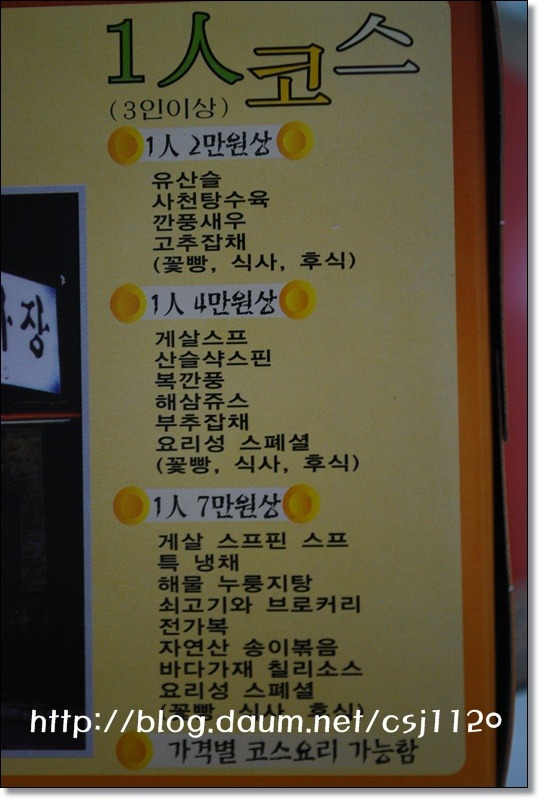 1人 코스
(3인이상)
1人 2만원상
유산슬
사천탕수육
깐풍새우
고추잡채
(꽃빵, 식사, 후식)
1人 4만원상
게살스프
산슬샥스핀
복깐풍
해삼쥬스
부추잡채
요리성 스폐셜
(꽃빵, 식사, 후식)
1人 7만원상
게살 스프핀 스프
특 냉채
해물 누룽지탕
쇠고기와 브로커리
전가복
자연산 송이볶음
바다가재 칠리소스
요리성 스폐셜
(꽃빵, 식사, 후식)
http://blog.daum.net/csj1120
가격별 코스요리 가능함
장